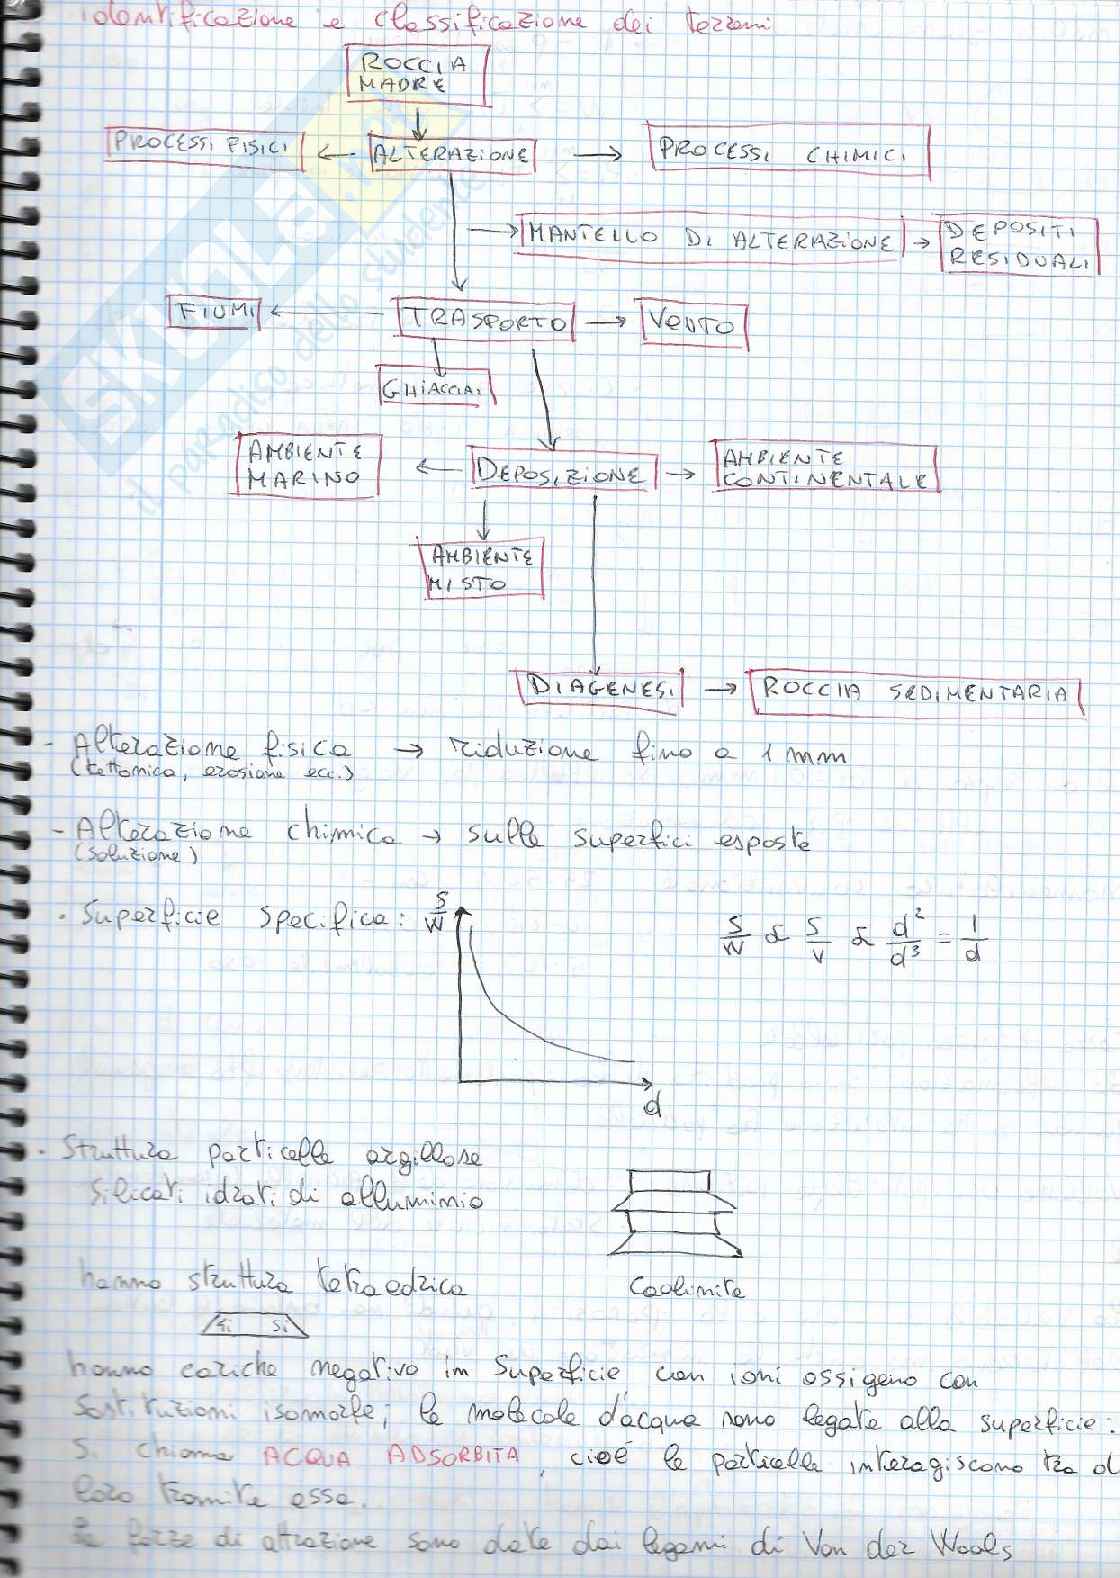 identificazione e classificazione dei terreni
ROCCIA
MADRE
PROCESSI FISICI
ALTERAZIONE
PROCESSI CHIMICI
MANTELLO DI ALTERAZIONE
DEPOSITI
RESIDUALI
FIUMI
TRASPORTO
VENTO
GHIACCIAI
AMBIENTE
MARINO
DEPOSIZIONE
AMBIENTE
CONTINENTALE
AMBIENTE
MISTO
DIAGENESI
ROCCIA SEDIMENTARIA
- Alterazione fisica → riduzione fino a 1 mm
(tettonica, erosione ecc.)
- Alterazione chimica → sulle superfici esposte
(soluzione)
· Superficie specifica: S/W
S/W ∝ S/V ∝ d²/d³ = 1/d
d
· Struttura particelle argillose
silicati idrati di alluminio
hanno struttura tetraedrica
Caolinite
Si Si
hanno cariche negative in superficie con ioni ossigeno con
sostituzioni isomorfe; le molecole d'acqua sono legate alla superficie:
si chiama ACQUA ADSORBITA, cioè le particelle interagiscono tra di
loro tramite essa.
le forze di attrazione sono date dai legami di Van der Waals
SKUOLA.net
il paradiso dello studente